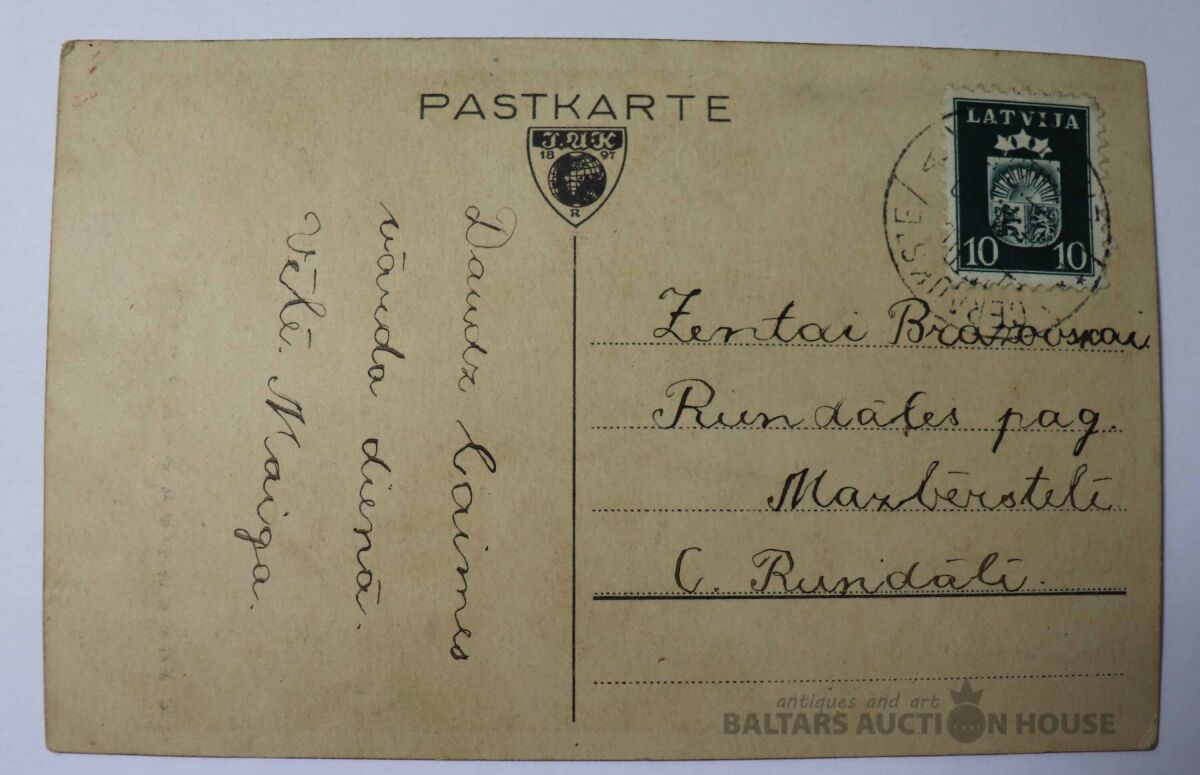 PASTKARTE
I.U.K
18 97
R
LATVIJA
10 10
CERAUKSTE
Daudz laimes
vārda dienā.
Vēlē. Maiga.
Zentai Brazovskai
Rundāles pag.
Mazbērstelē
C. Rundāli.
antiques and art
BALTARS AUCTION HOUSE